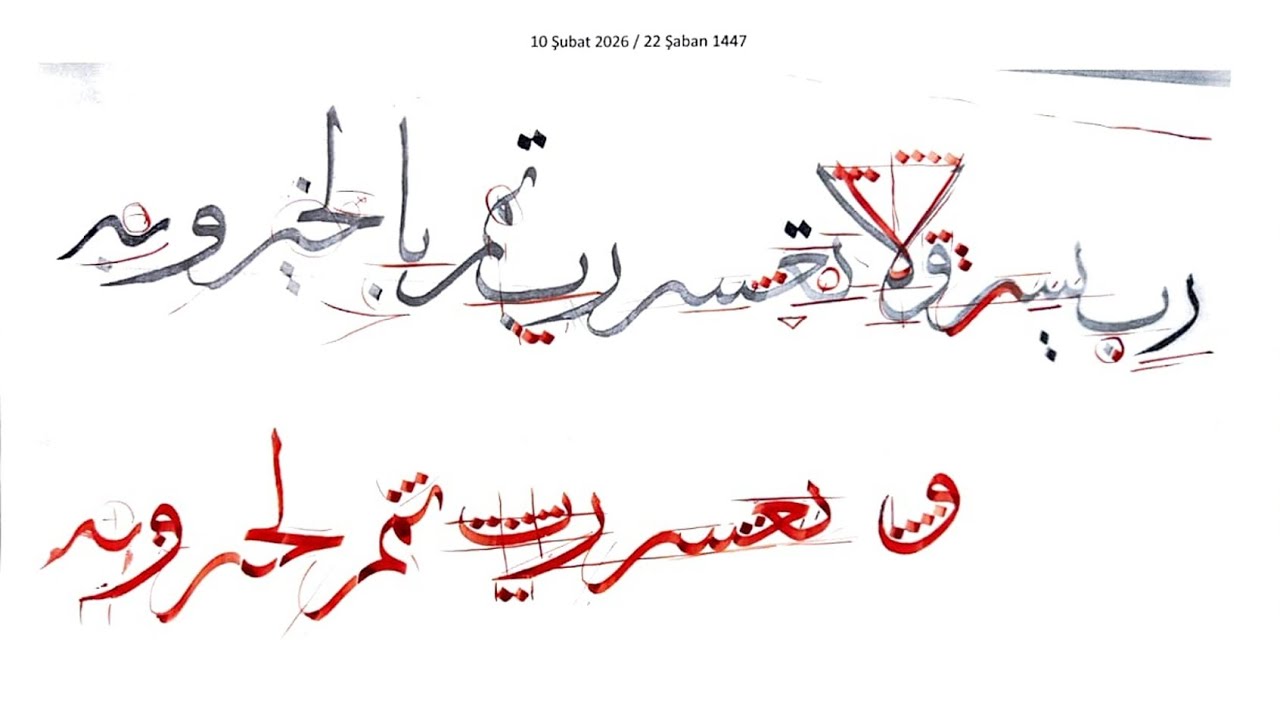 10 Şubat 2026 / 22 Şaban 1447
رب يسر ولا تعسر رب تمم بالخير وبه
و تعسر رب تمم لخير وبه